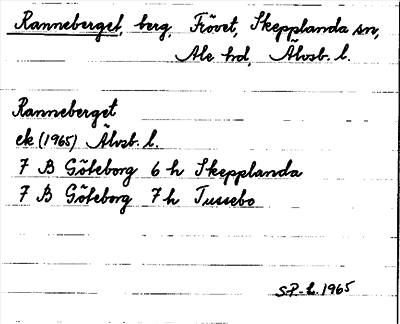 Ranneberget, berg, Frövet, Skepplanda sn,
Ale hd, Älvsb. l.
Ranneberget
ek (1965) Älvsb. l.
7 B Göteborg 6 h Skepplanda
7 B Göteborg 7 h Tussebo
1965